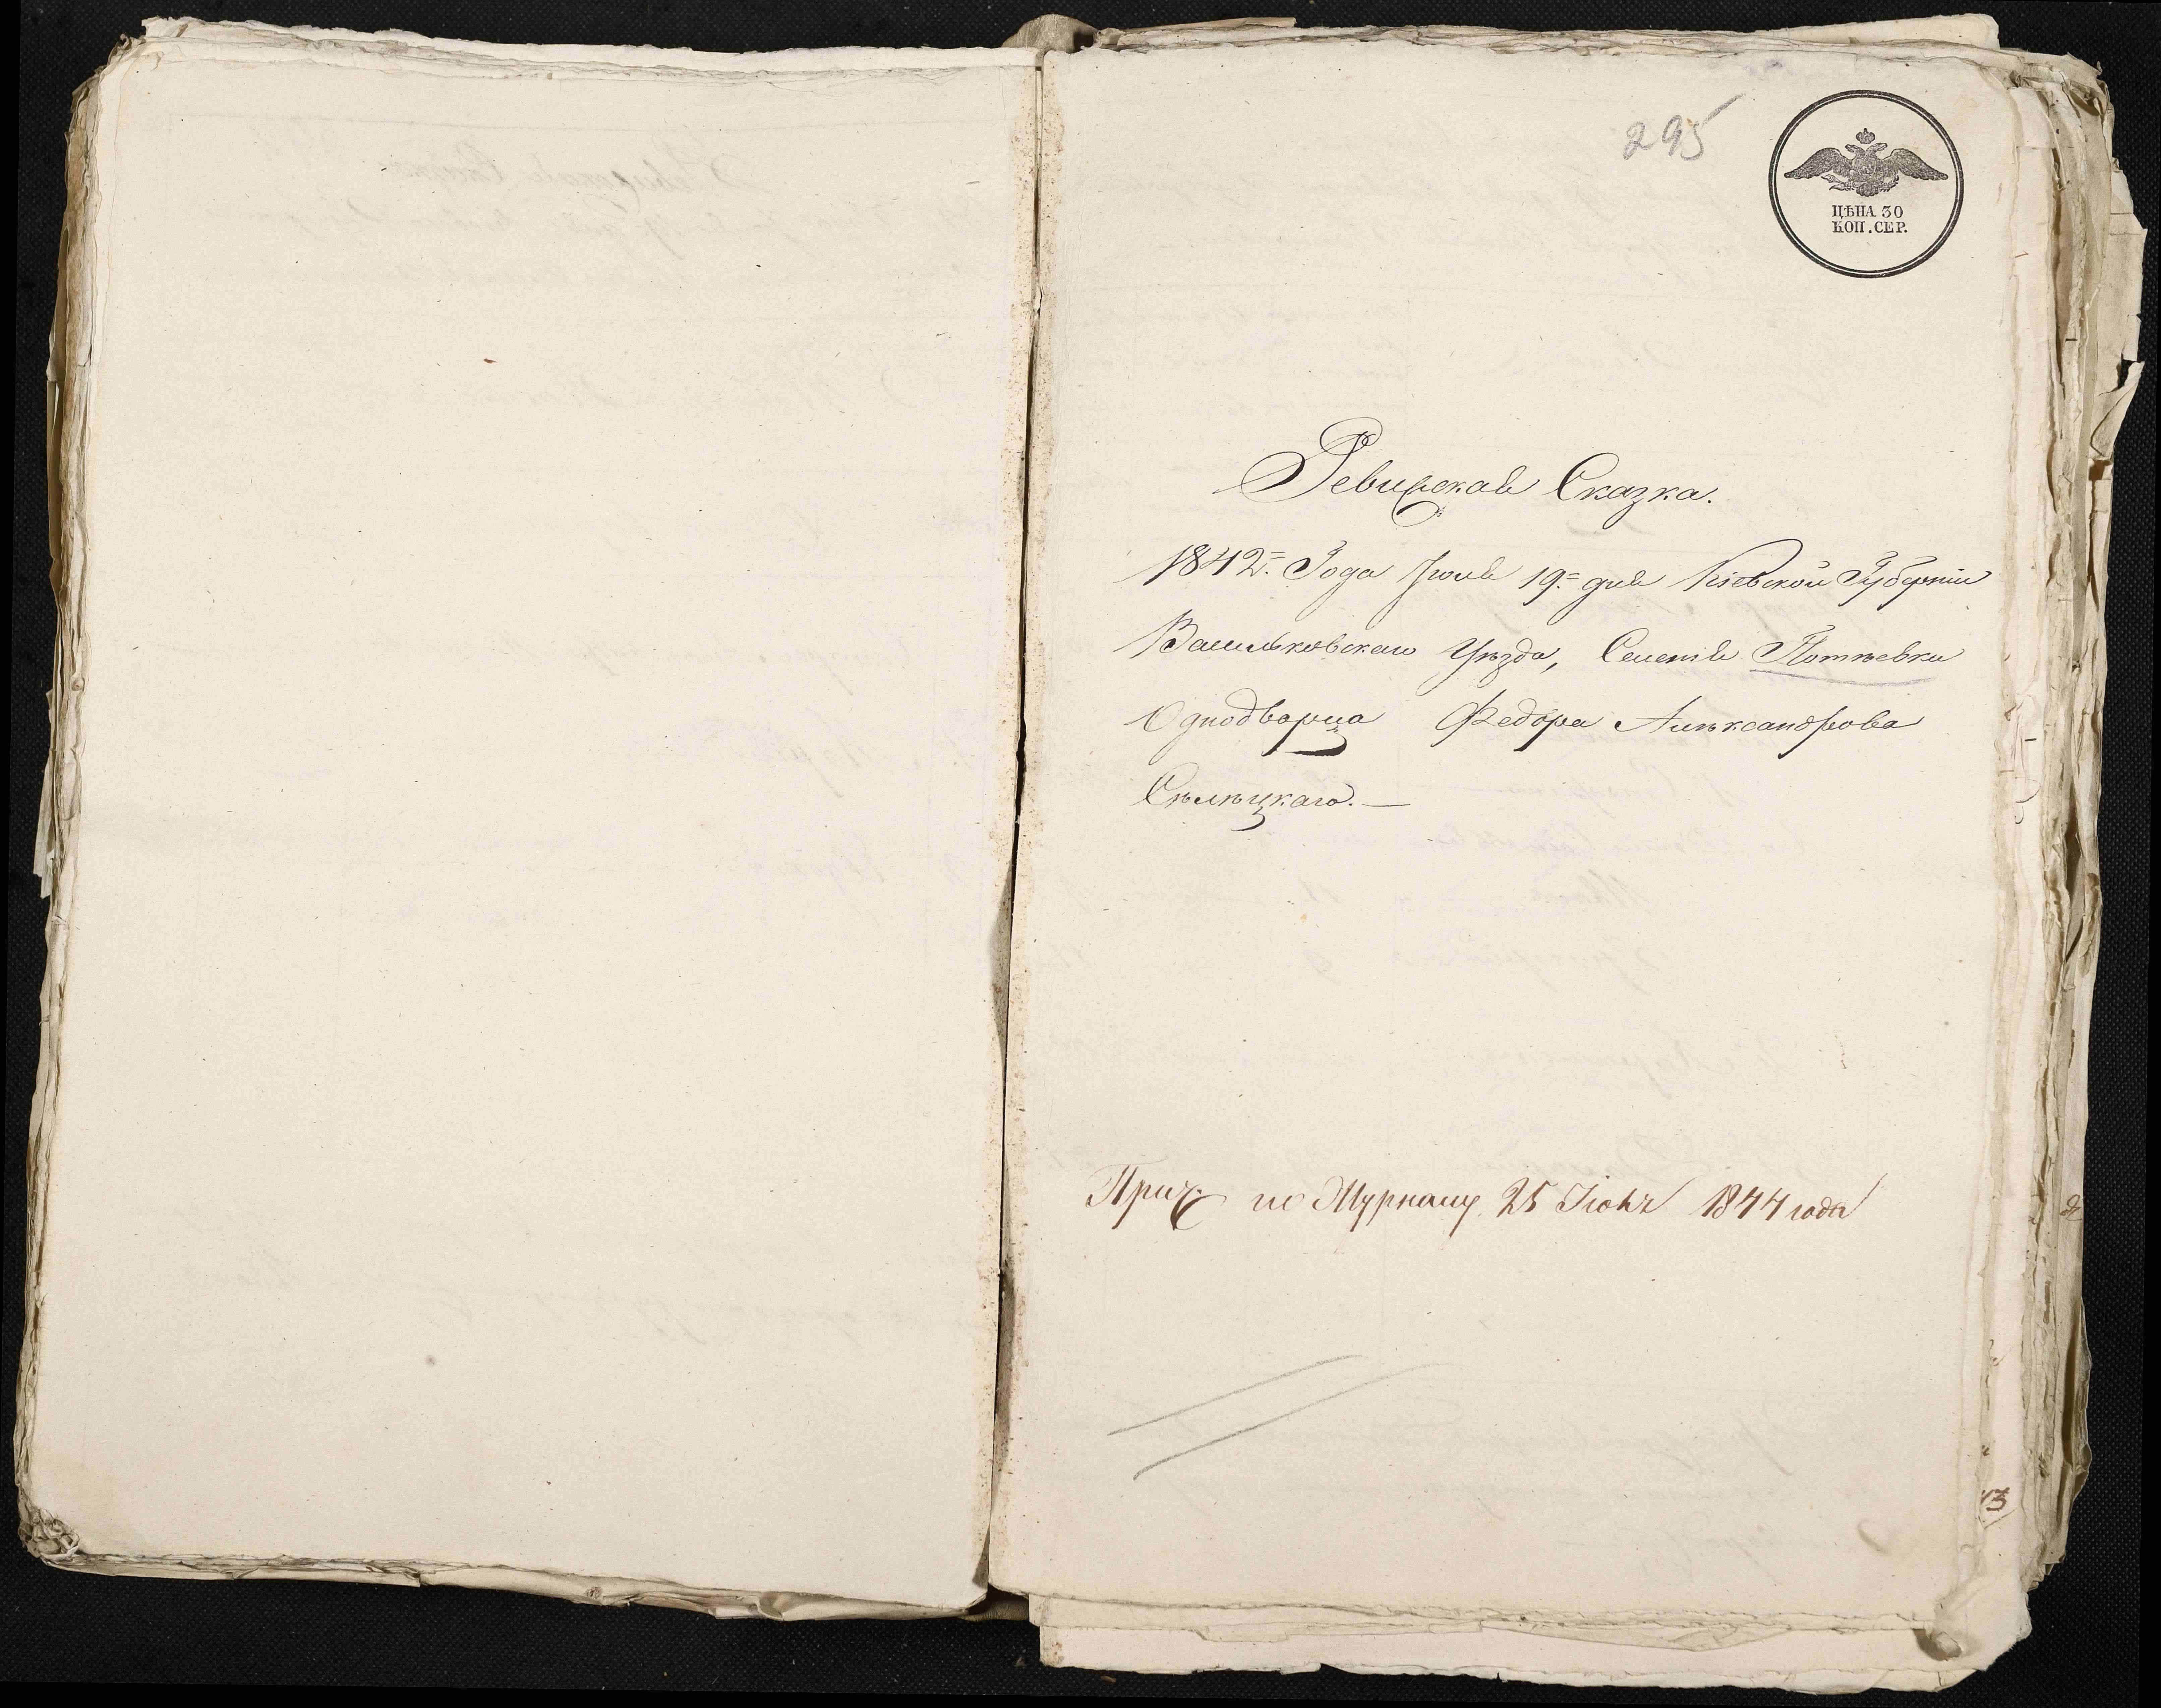 295
ЦѢНА 30
КОП. СЕР.
Ревизская Сказка.
1842. Года Іюля 19. дня Кіевской Губерніи
Васильковскаго Уѣзда, Селенія Потѣевки
Однодворца Федора Алѣксандрова
Сѣлѣцкаго. —
по Журналу 25 1844 года